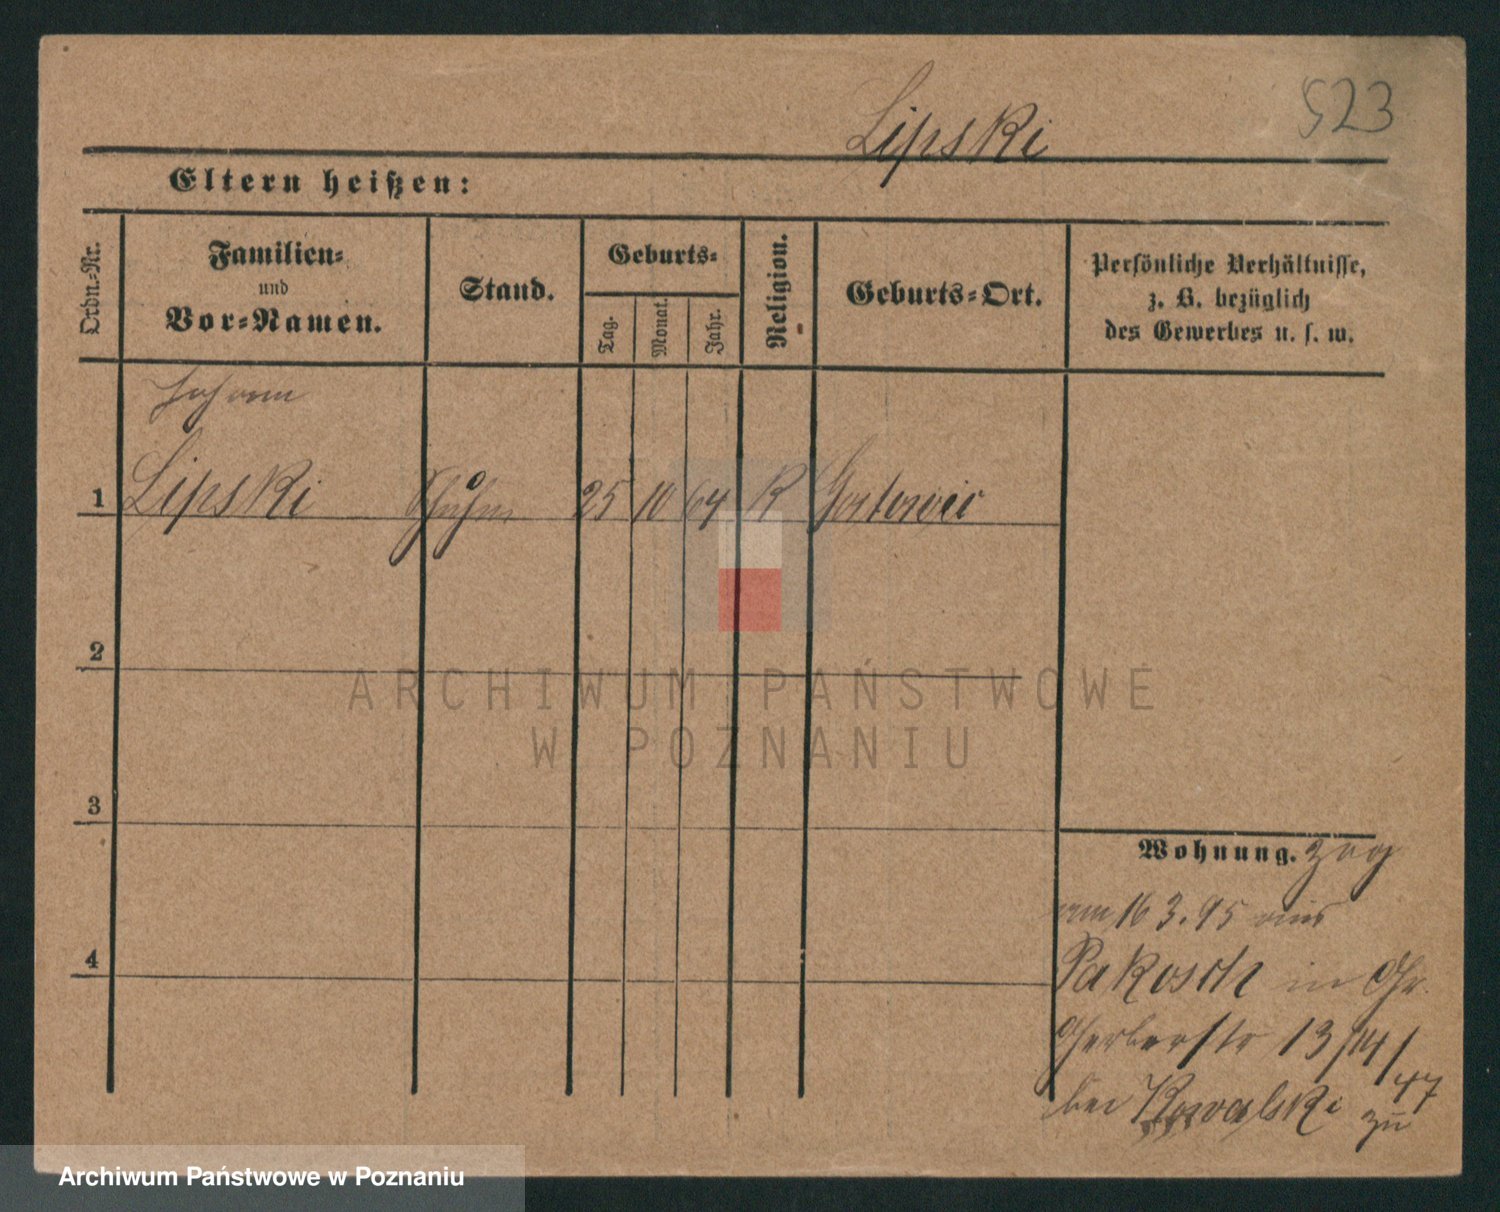 523
Lipski
Eltern heißen:
Ordn.-Nr.
Familien-
und
Vor-Namen.
Stand.
Geburts-
Tag.
Monat.
Jahr.
Religion.
Geburts-Ort.
Persönliche Verhältnisse,
z. B. bezüglich
des Gewerbes u. s. w.
Johann
1 Lipski 25 10 64 K
2
3
4
ARCHIWUM PAŃSTWOWE
W POZNANIU
Wohnung. zog
am 16 3. 95 aus
Pakosch in Gr.
Gerberstr 13/14/
bei Kowalski 47
zu
Archiwum Państwowe w Poznaniu